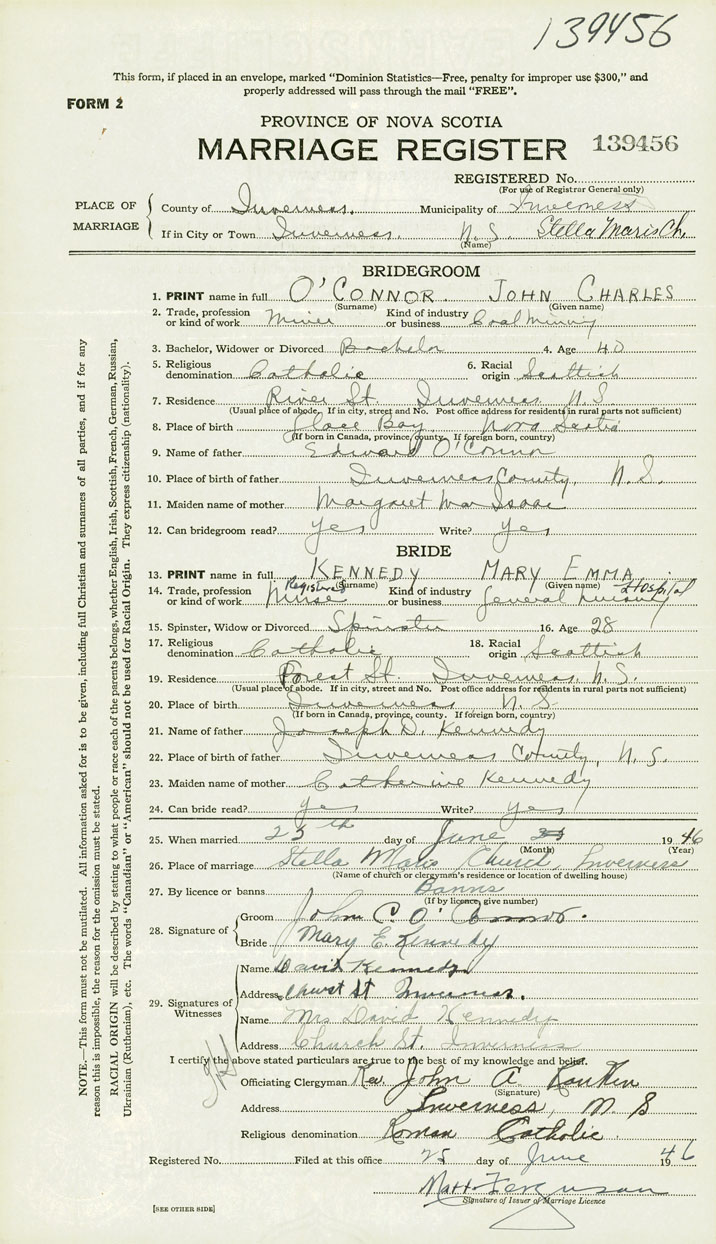 139456
This form, if placed in an envelope, marked "Dominion Statistics—Free, penalty for improper use $300," and
properly addressed will pass through the mail "FREE".
FORM 2
PROVINCE OF NOVA SCOTIA
MARRIAGE REGISTER 139456
REGISTERED No.
(For use of Registrar General only)
PLACE OF MARRIAGE
County of Inverness. Municipality of Inverness
If in City or Town Inverness. N.S. Stella Maris Ch.
(Name)
BRIDEGROOM
1. PRINT name in full O'CONNOR. JOHN CHARLES
(Surname) (Given name)
2. Trade, profession or kind of work Miner Kind of industry or business Coal Mining
3. Bachelor, Widower or Divorced Bachelor 4. Age 40
5. Religious denomination Catholic 6. Racial origin Scottish
7. Residence River St. Inverness N.S
(Usual place of abode. If in city, street and No. Post office address for residents in rural parts not sufficient)
8. Place of birth Glace Bay Nova Scotia
(If born in Canada, province, county. If foreign born, country)
9. Name of father Edward O'Connor
10. Place of birth of father Inverness County, N.S.
11. Maiden name of mother Margaret MacIsaac
12. Can bridegroom read? yes Write? yes
BRIDE
13. PRINT name in full KENNEDY MARY EMMA
(Surname) (Given name)
14. Trade, profession or kind of work Registered Nurse Kind of industry or business General Nursing Hospital
15. Spinster, Widow or Divorced Spinster 16. Age 28
17. Religious denomination Catholic 18. Racial origin Scottish
19. Residence Forest St. Inverness N.S.
(Usual place of abode. If in city, street and No. Post office address for residents in rural parts not sufficient)
20. Place of birth Inverness N.S
(If born in Canada, province, county. If foreign born, country)
21. Name of father Joseph D. Kennedy
22. Place of birth of father Inverness County, N.S.
23. Maiden name of mother Catherine Kennedy
24. Can bride read? yes Write? yes
25. When married 25th day of June 1946
(Month) (Year)
26. Place of marriage Stella Maris Church, Inverness
(Name of church or clergyman's residence or location of dwelling house)
27. By licence or banns Banns
(If by licence, give number)
28. Signature of
Groom John C O'Connor.
Bride Mary E. Kennedy
29. Signatures of Witnesses
Name David Kennedy
Address Church St Inverness.
Name Mrs David Kennedy
Address Church St. Inverness
I certify the above stated particulars are true to the best of my knowledge and belief.
Officiating Clergyman Rev. John A. Rankin
(Signature)
Address Inverness, N S
Religious denomination Roman Catholic.
Registered No. Filed at this office 25 day of June 1946
Matt. Ferguson
Signature of Issuer of Marriage Licence
[SEE OTHER SIDE]
NOTE.—This form must not be mutilated. All information asked for is to be given, including full Christian and surnames of all parties, and if for any
reason this is impossible, the reason for the omission must be stated.
RACIAL ORIGIN will be described by stating to what people or race each of the parents belongs, whether English, Irish, Scottish, French, German, Russian,
Ukrainian (Ruthenian), etc. The words "Canadian" or "American" should not be used for Racial Origin. They express citizenship (nationality).